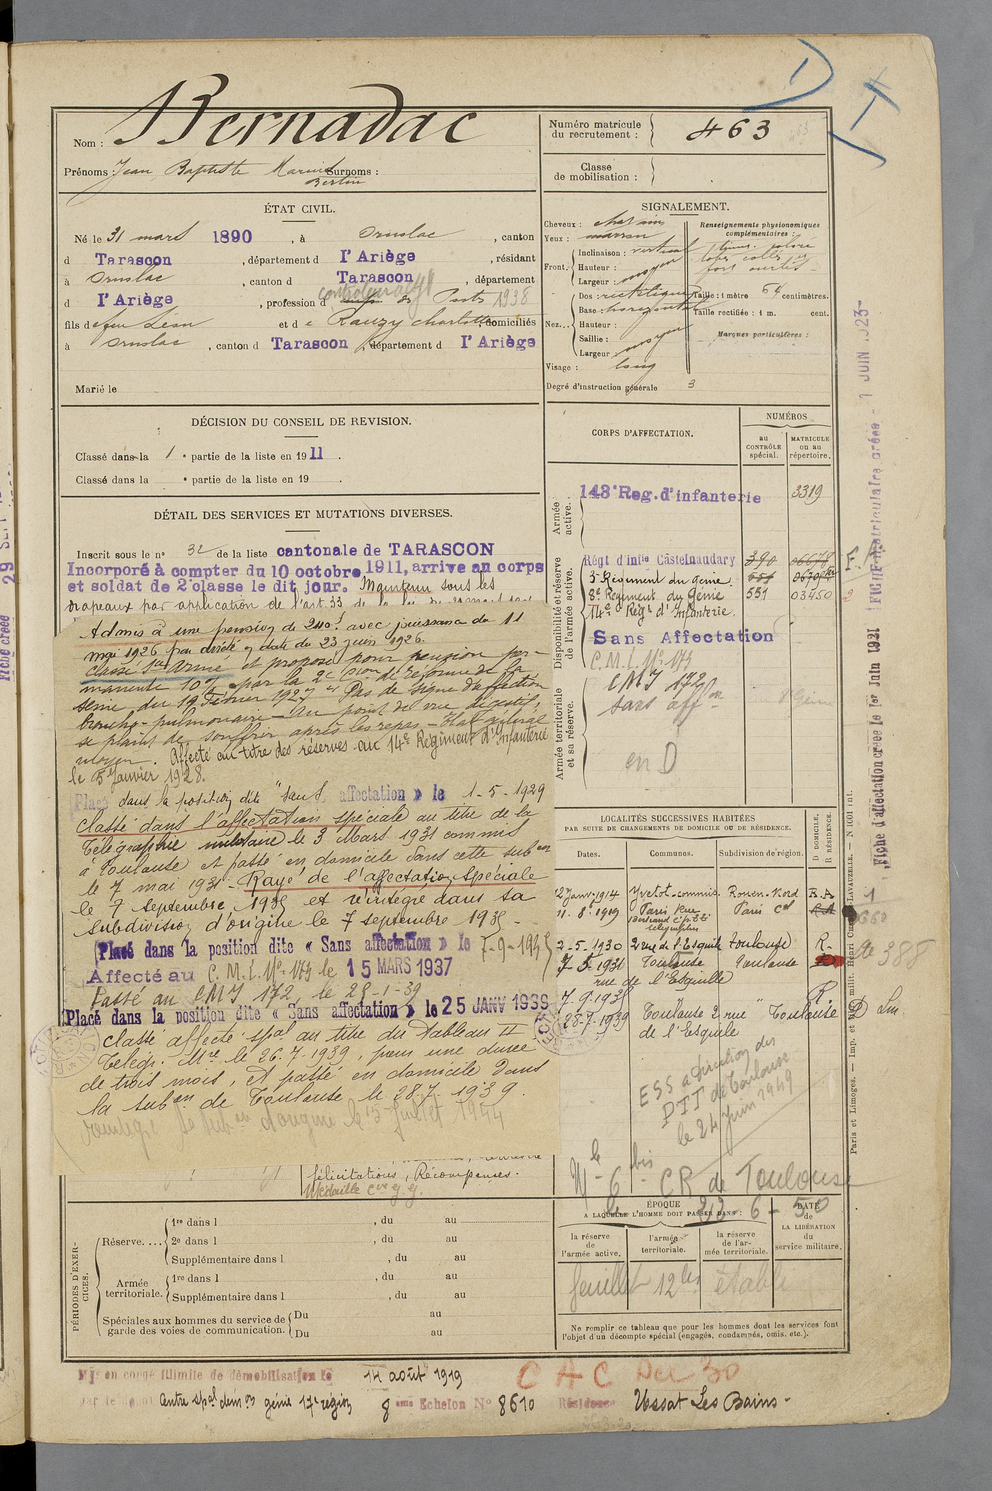 Nom : Bernadac
Prénoms : Jean Baptiste Marius Surnoms :
Bertin
Numéro matricule
du recrutement : 463
Classe
de mobilisation :
ÉTAT CIVIL.
Né le 31 mars 1890, à Ornolac, canton
d Tarascon, département d l'Ariège, résidant
à Ornolac, canton d Tarascon, département
d l'Ariège, profession d controleur des Postes 1938
fils de feu Léon et de Rauzy Charlotte, domiciliés
à Ornolac, canton d Tarascon, département d l'Ariège
Marié le
DÉCISION DU CONSEIL DE REVISION.
Classé dans la 1e partie de la liste en 1911.
Classé dans la e partie de la liste en 19
DÉTAIL DES SERVICES ET MUTATIONS DIVERSES.
Inscrit sous le n° 32 de la liste cantonale de TARASCON
Incorporé à compter du 10 octobre 1911, arrive au corps
et soldat de 2e classe le dit jour. Maintenu sous les
drapeaux par application de l'art. 33
Admis à une pension de 240f. avec jouissance du 11
mai 1926 par arrêté en date du 23 juin 1926.
Classé 1er Armé et proposé pour pension per-
manente 10% par la 2e Con de réforme de la
Seine du 19 Février 1927 "Pas de signe d'affection
broncho-pulmonaire - Au point de vue digestif,
se plaint de souffrir après les repas - Etat général
moyen. Affecté au titre des réserves au 14e Régiment d'Infanterie
le 5 Janvier 1928.
Placé dans la position dite "sans affectation" le 1-5-1929
Classé dans l'affectation spéciale au titre de la
Télégraphie militaire le 3 Mars 1931 commis
à Toulouse et passé en domicile dans cette subon
le 7 mai 1931 - Rayé de l'affectation Spéciale
le 7 Septembre 1935 et réintégré dans sa
Subdivision d'origine le 7 septembre 1935
Placé dans la position dite « Sans affectation » le 7-9-1935
Affecté au C.M.I. N° 173 le 15 MARS 1937
Passé au CMI 172 le 25-1-39
Placé dans la position dite « Sans affectation » le 25 JANV 1939
Classé affecté spal au titre du Tableau II
Télég. Mre le 26.7.1939, pour une durée
de trois mois, et passé en domicile dans
la subon de Toulouse le 28.7.1939.
félicitations, Récompenses.
Médaille
SIGNALEMENT.
Cheveux : chatain
Yeux : marron
Front. Inclinaison : vertical
Hauteur : moyen
Largeur :
Nez... Dos : rectiligne
Base : horizontal
Hauteur :
Saillie : moyen
Largeur
Visage : long
Degré d'instruction générale 3
Renseignements physionomiques
complémentaires :
Taille : 1 mètre 64 centimètres.
Taille rectifiée : 1 m. cent.
Marques particulières :
CORPS D'AFFECTATION.
NUMÉROS
au
CONTRÔLE
spécial.
MATRICULE
ou au
répertoire.
Armée
active.
143e Reg. d'infanterie 3319
Disponibilité et réserve
de l'armée active.
Régt d'infie Castelnaudary 390
5e Régiment du Génie.
8e Régiment du Génie 551 03450
14e Régt d'Infanterie.
Sans Affectation
C.M.I. N° 173
Armée territoriale
et sa réserve.
CMI 172
sans affon
en D
LOCALITÉS SUCCESSIVES HABITÉES
PAR SUITE DE CHANGEMENTS DE DOMICILE OU DE RÉSIDENCE.
Dates. Communes. Subdivision de région. D DOMICILE, R RÉSIDENCE.
12 Janv. 1914 Yvetot-commis. Rouen-Nord R.A
11.8.1919 Paris Rue Paris Cal R.A
7-5-1930 2 rue de l'Esquile Toulouse R-
7-5-1931 Toulouse Toulouse
rue de l'Esquille
7.9.1935 R
28-7-1939 Toulouse 2 rue Toulouse D
de l'Esquile
ESS a direction des
PTT de Toulouse
le 24 Juin 1949
CR de Toulouse
le 23-6-50
ÉPOQUE
A LAQUELLE L'HOMME DOIT PASSER DANS :
la réserve
de l'armée active.
l'armée
territoriale.
la réserve
de l'ar-
mée territoriale.
DATE
de
LA LIBÉRATION
du
service militaire.
feuillet 12 bis établi
Ne remplir ce tableau que pour les hommes dont les services font
l'objet d'un décompte spécial (engagés, condamnés, omis, etc.).
PÉRIODES D'EXER-
CICES.
Réserve.... 1re dans l , du au
2e dans l , du au
Supplémentaire dans l , du au
Armée
territoriale. 1re dans l , du au
Supplémentaire dans l , du au
Spéciales aux hommes du service de
garde des voies de communication. Du au
Du au
Mis en congé illimité de démobilisation le 14 août 1919
par le dépôt Centre spal démon génie 17e région 8eme Echelon N° 8610 Résidence Ussat Les Bains-
CAC Dec 30
Fiche matriculaire créée - 1 JUIN 1923-
Fiche d'affectation créée le 1er Juin 1931
Paris et Limoges. — Imp. et Libr. milit. Henri CHARLES-LAVAUZELLE. — N 1601 int.
Fiche créée
29 SEPT